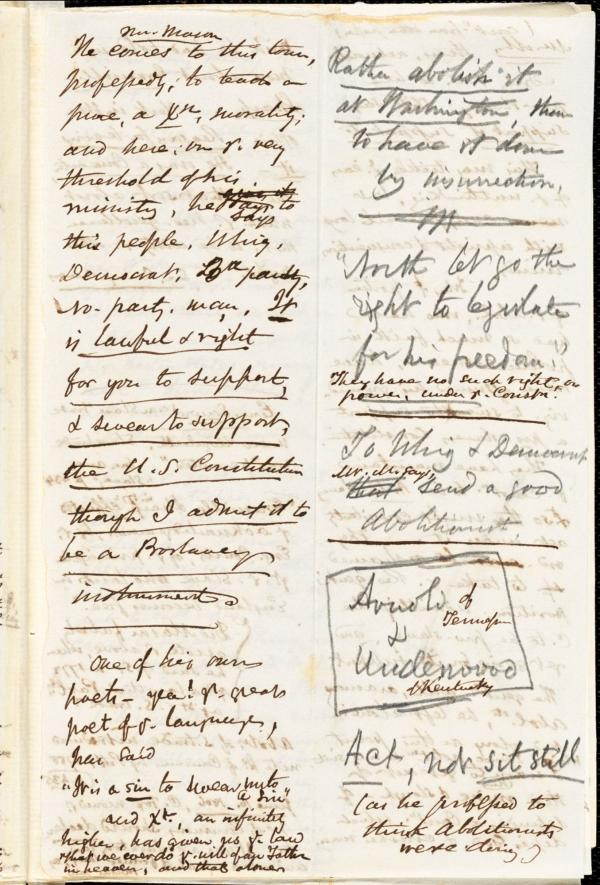 Mr. Mason
He comes to this town,
professedly, to teach a
pure, a Xn, morality;
and here, on ye very
threshold of his
ministry, he says to
this people, Whig,
Democrat, 3d party,
no-party, man, It
is lawful & right
for you to support,
& swear to support,
the U.S. Constitution
though I admit it to
be a Proslavery
instrument.
One of his own
poets – yea! ye great
poet of ye language,
has said
"It is a sin to swear unto
a sin"
and Xt, an infinitely
higher, has given us ye law
that we ever do ye will of our Father
in heaven, and that alone.
Rather abolish it
at Washington, than
to have it done
by insurrection.
"North let go the
right to legislate
for his freedom."
They have no such right, or
power, under ye Constn.
To Whig & Democrat
Mr. M. says,
send a good
Abolitionist.
Arnold of
Tennessee
&
Underwood
of Kentucky
Act, not sit still
(as he professed to
think Abolitionists
were doing.)